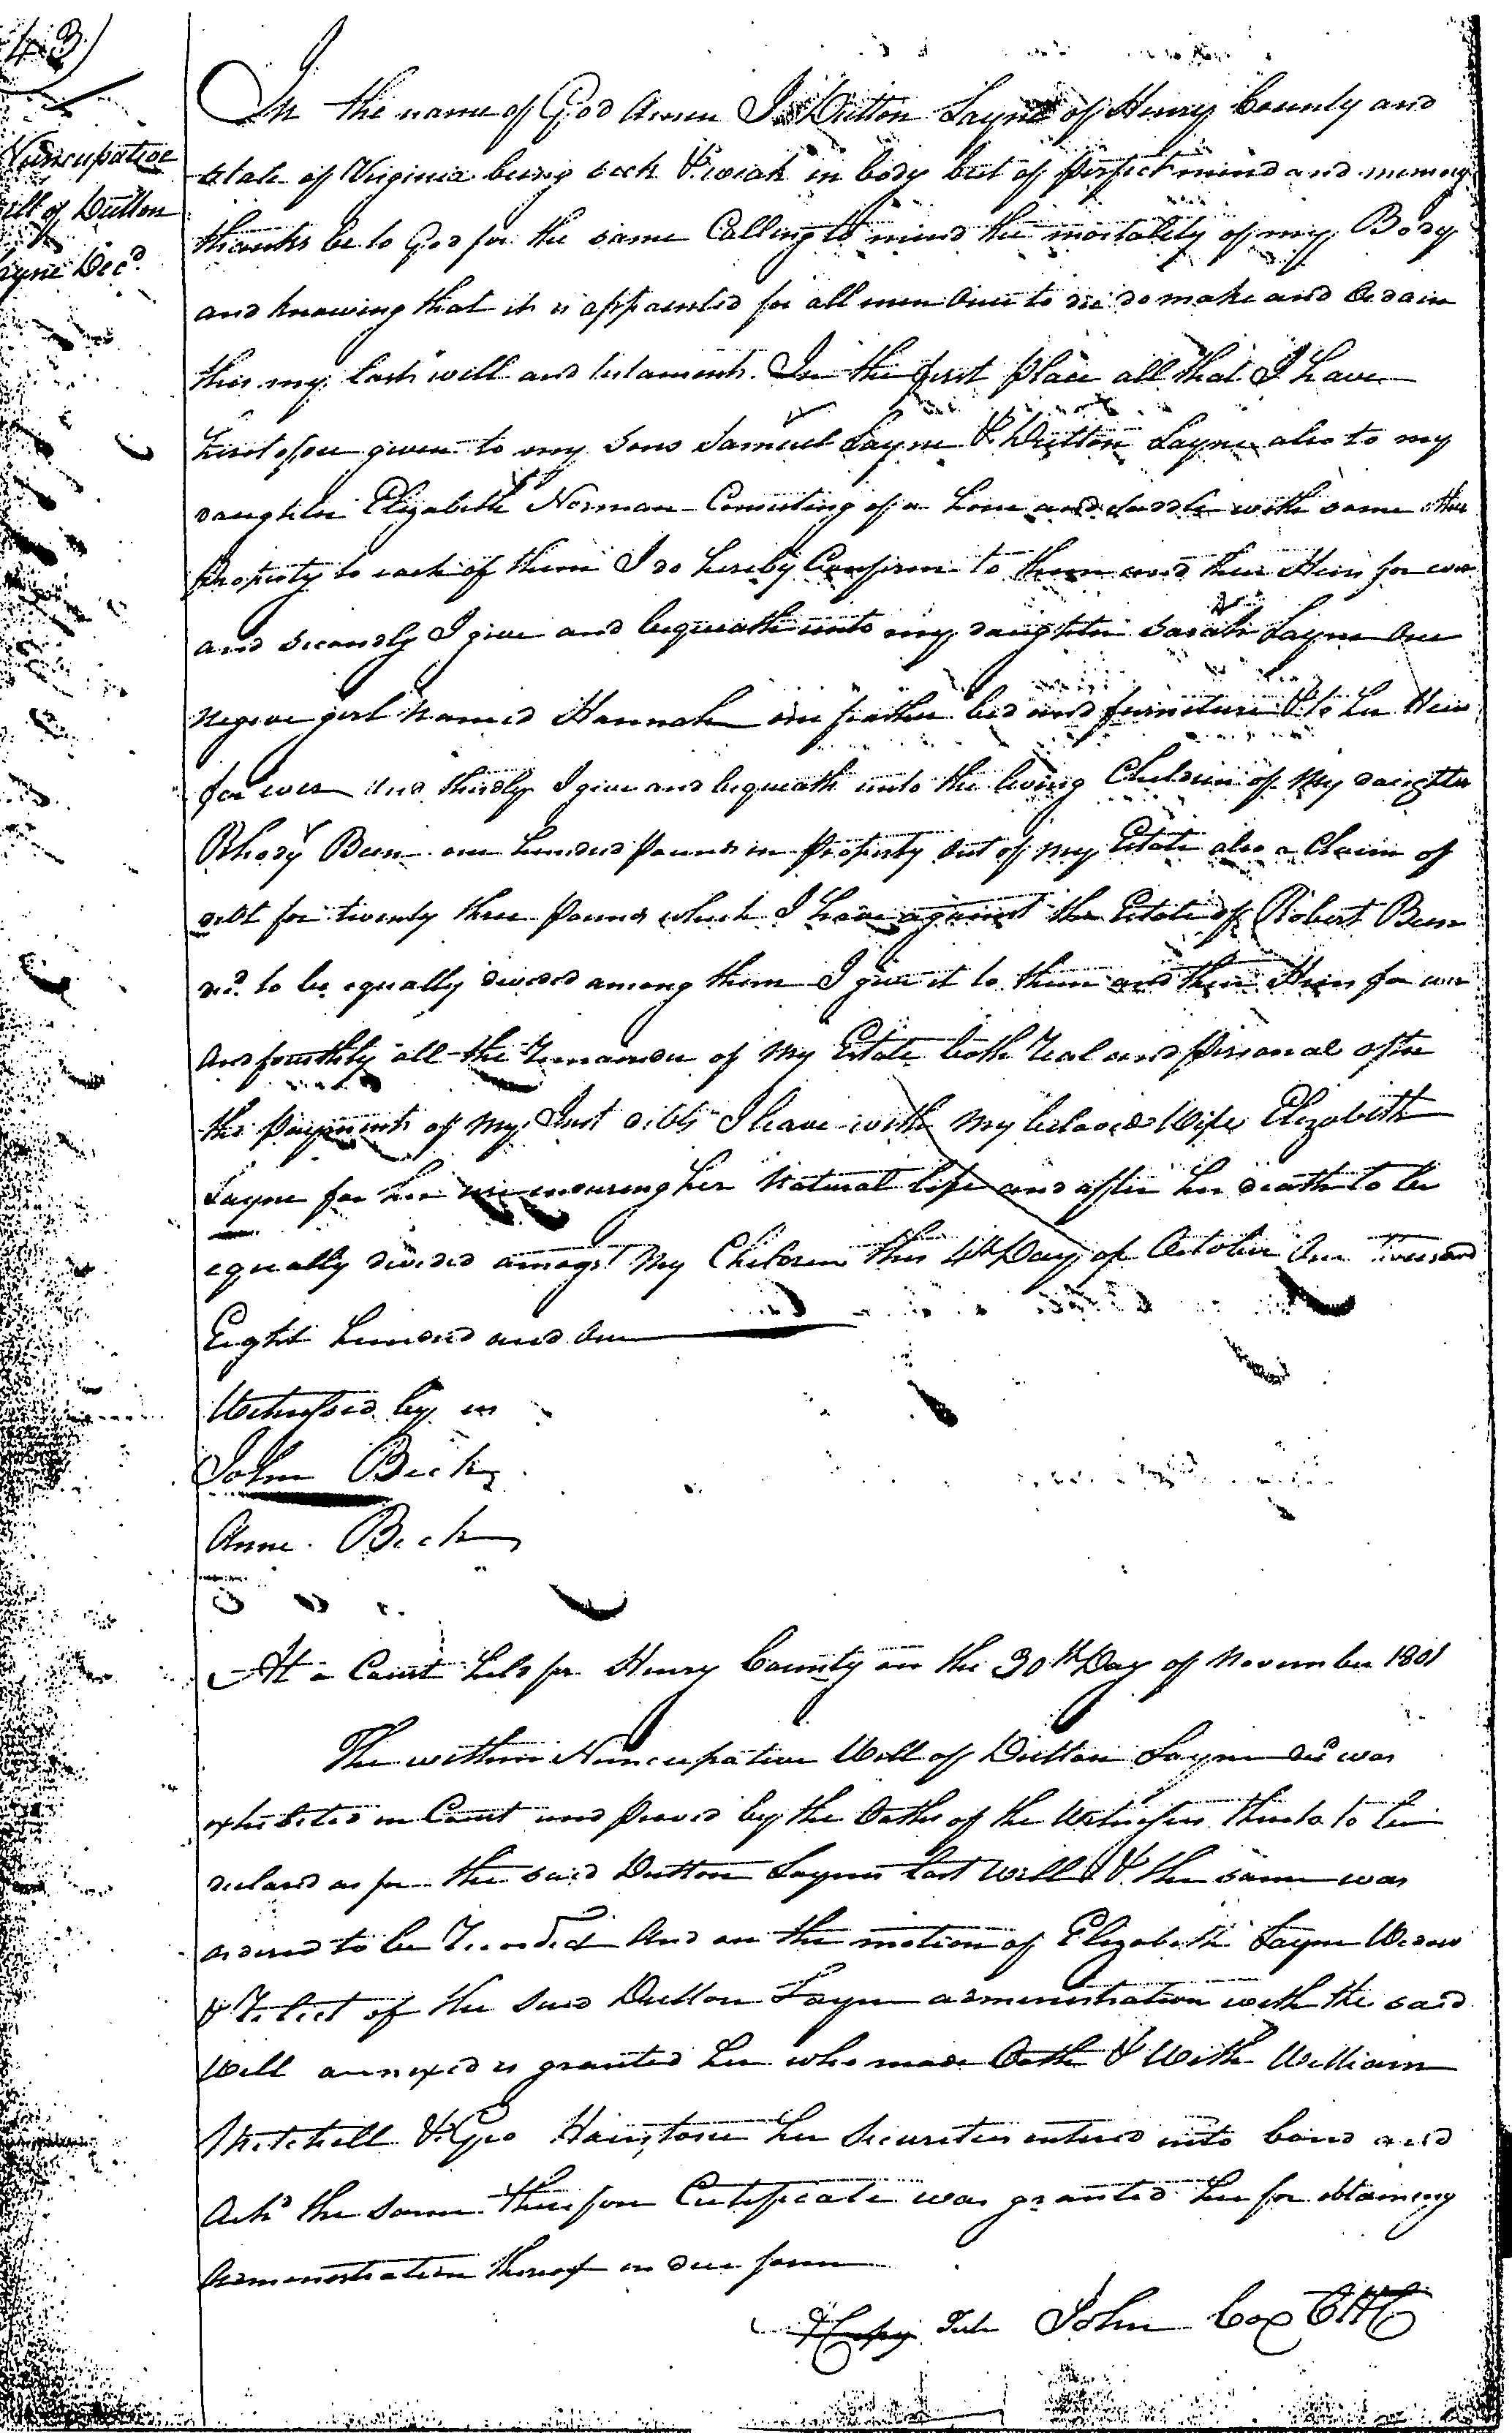 43)
Nuncupative
ill of Dutton
ayne Decd.
In the name of God Amen I Dutton Layne of Henry County and
state of Virginia being sick & weak in body but of perfect mind and memory
thanks be to God for the same Calling to mind the mortality of my Body
and knowing that it is appointed for all men Once to die do make and Ordain
this my last will and testament. In the first place all that I have
heretofore given to my sons Samuel Layne & Dutton Layne also to my
daughter Elizabeth Norman Consisting of a horse and saddle with some other
Property to each of them I do hereby Confirm to them and their Heirs for ever
and secondly I give and bequeath unto my daughter Sarah Layne One
negroe girl named Hannah one feather bed and furniture & to her Heirs
for ever and thirdly I give and bequeath unto the living Children of My daughter
Rhody Bein one hundred Pounds in Property out of my Estate also a Claim of
debt for twenty three pounds which I have against the Estate of Robert Bein
decd. to be equally divided among them I give it to them and their Heirs for ever
And fourthly all the remainder of My Estate both real and personal after
the payments of My Just debts I leave with My beloved Wife Elizabeth
Layne for her use enduring her Natural life and after her death to be
equally divided amongst My Children this 4th Day of October One Thousand
Eight hundred and One
Witnessed by us
John Beck
Anne Beck
At a Court held for Henry County on the 30th Day of November 1801
The within Nuncupative Will of Dutton Layne decd was
exhibited in Court and proved by the Oaths of the Witnesses thereto to be
declared as for the said Dutton Laynes last Will & the same was
ordered to be Recorded And on the motion of Elizabeth Layne Widow
& Relict of the said Dutton Layne administration with the said
Will annexed is granted her who made Oath & With William
Mitchell & Geo Hairstone her Securities entered into bond and
Ackd the same therefore Certificate was granted her for obtaining
Administration thereof in due form
A Copy Teste John Cox CHC